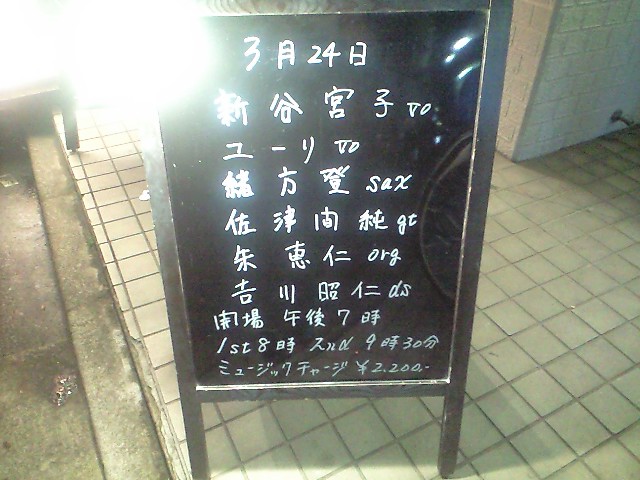 3月24日
新谷宮子 vo
ユーリ vo
緒方登 sax
佐津間純 gt
朱恵仁 org
吉川昭仁 ds
開場 午後7時
1st 8時 2nd 9時30分
ミュージックチャージ ¥2.200.-